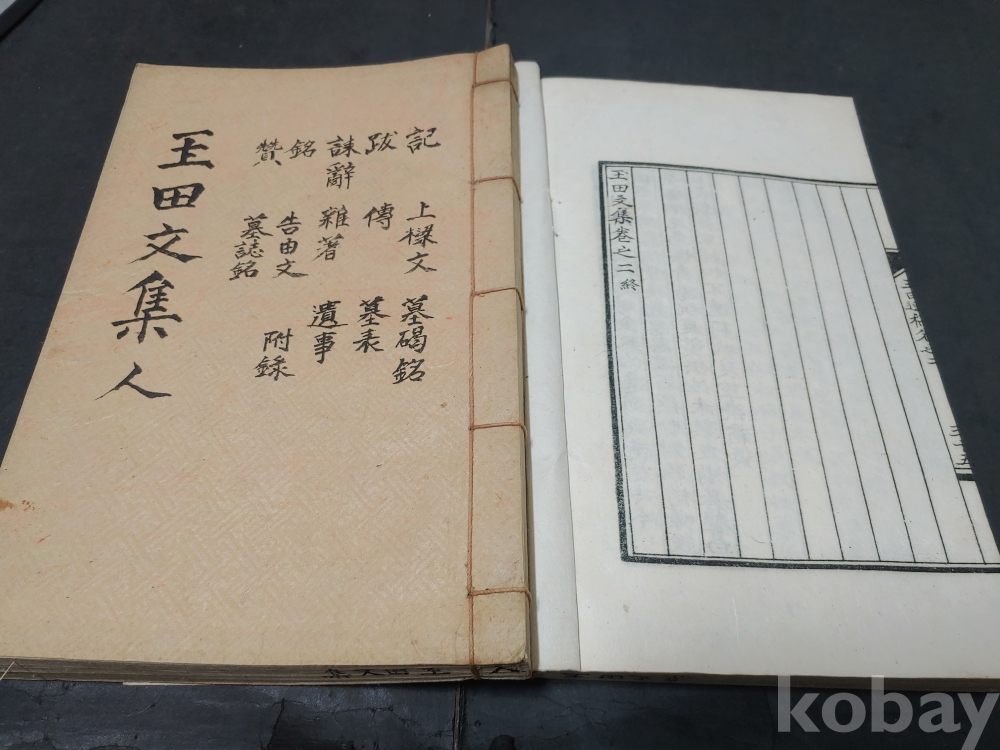 記 上樑文 墓碣銘
跋 傳 墓表
誄辭 雜著 遺事
銘 告由文 附錄
贊 墓誌銘
玉田文集 人
玉田文集卷之二終
三十五
kobay